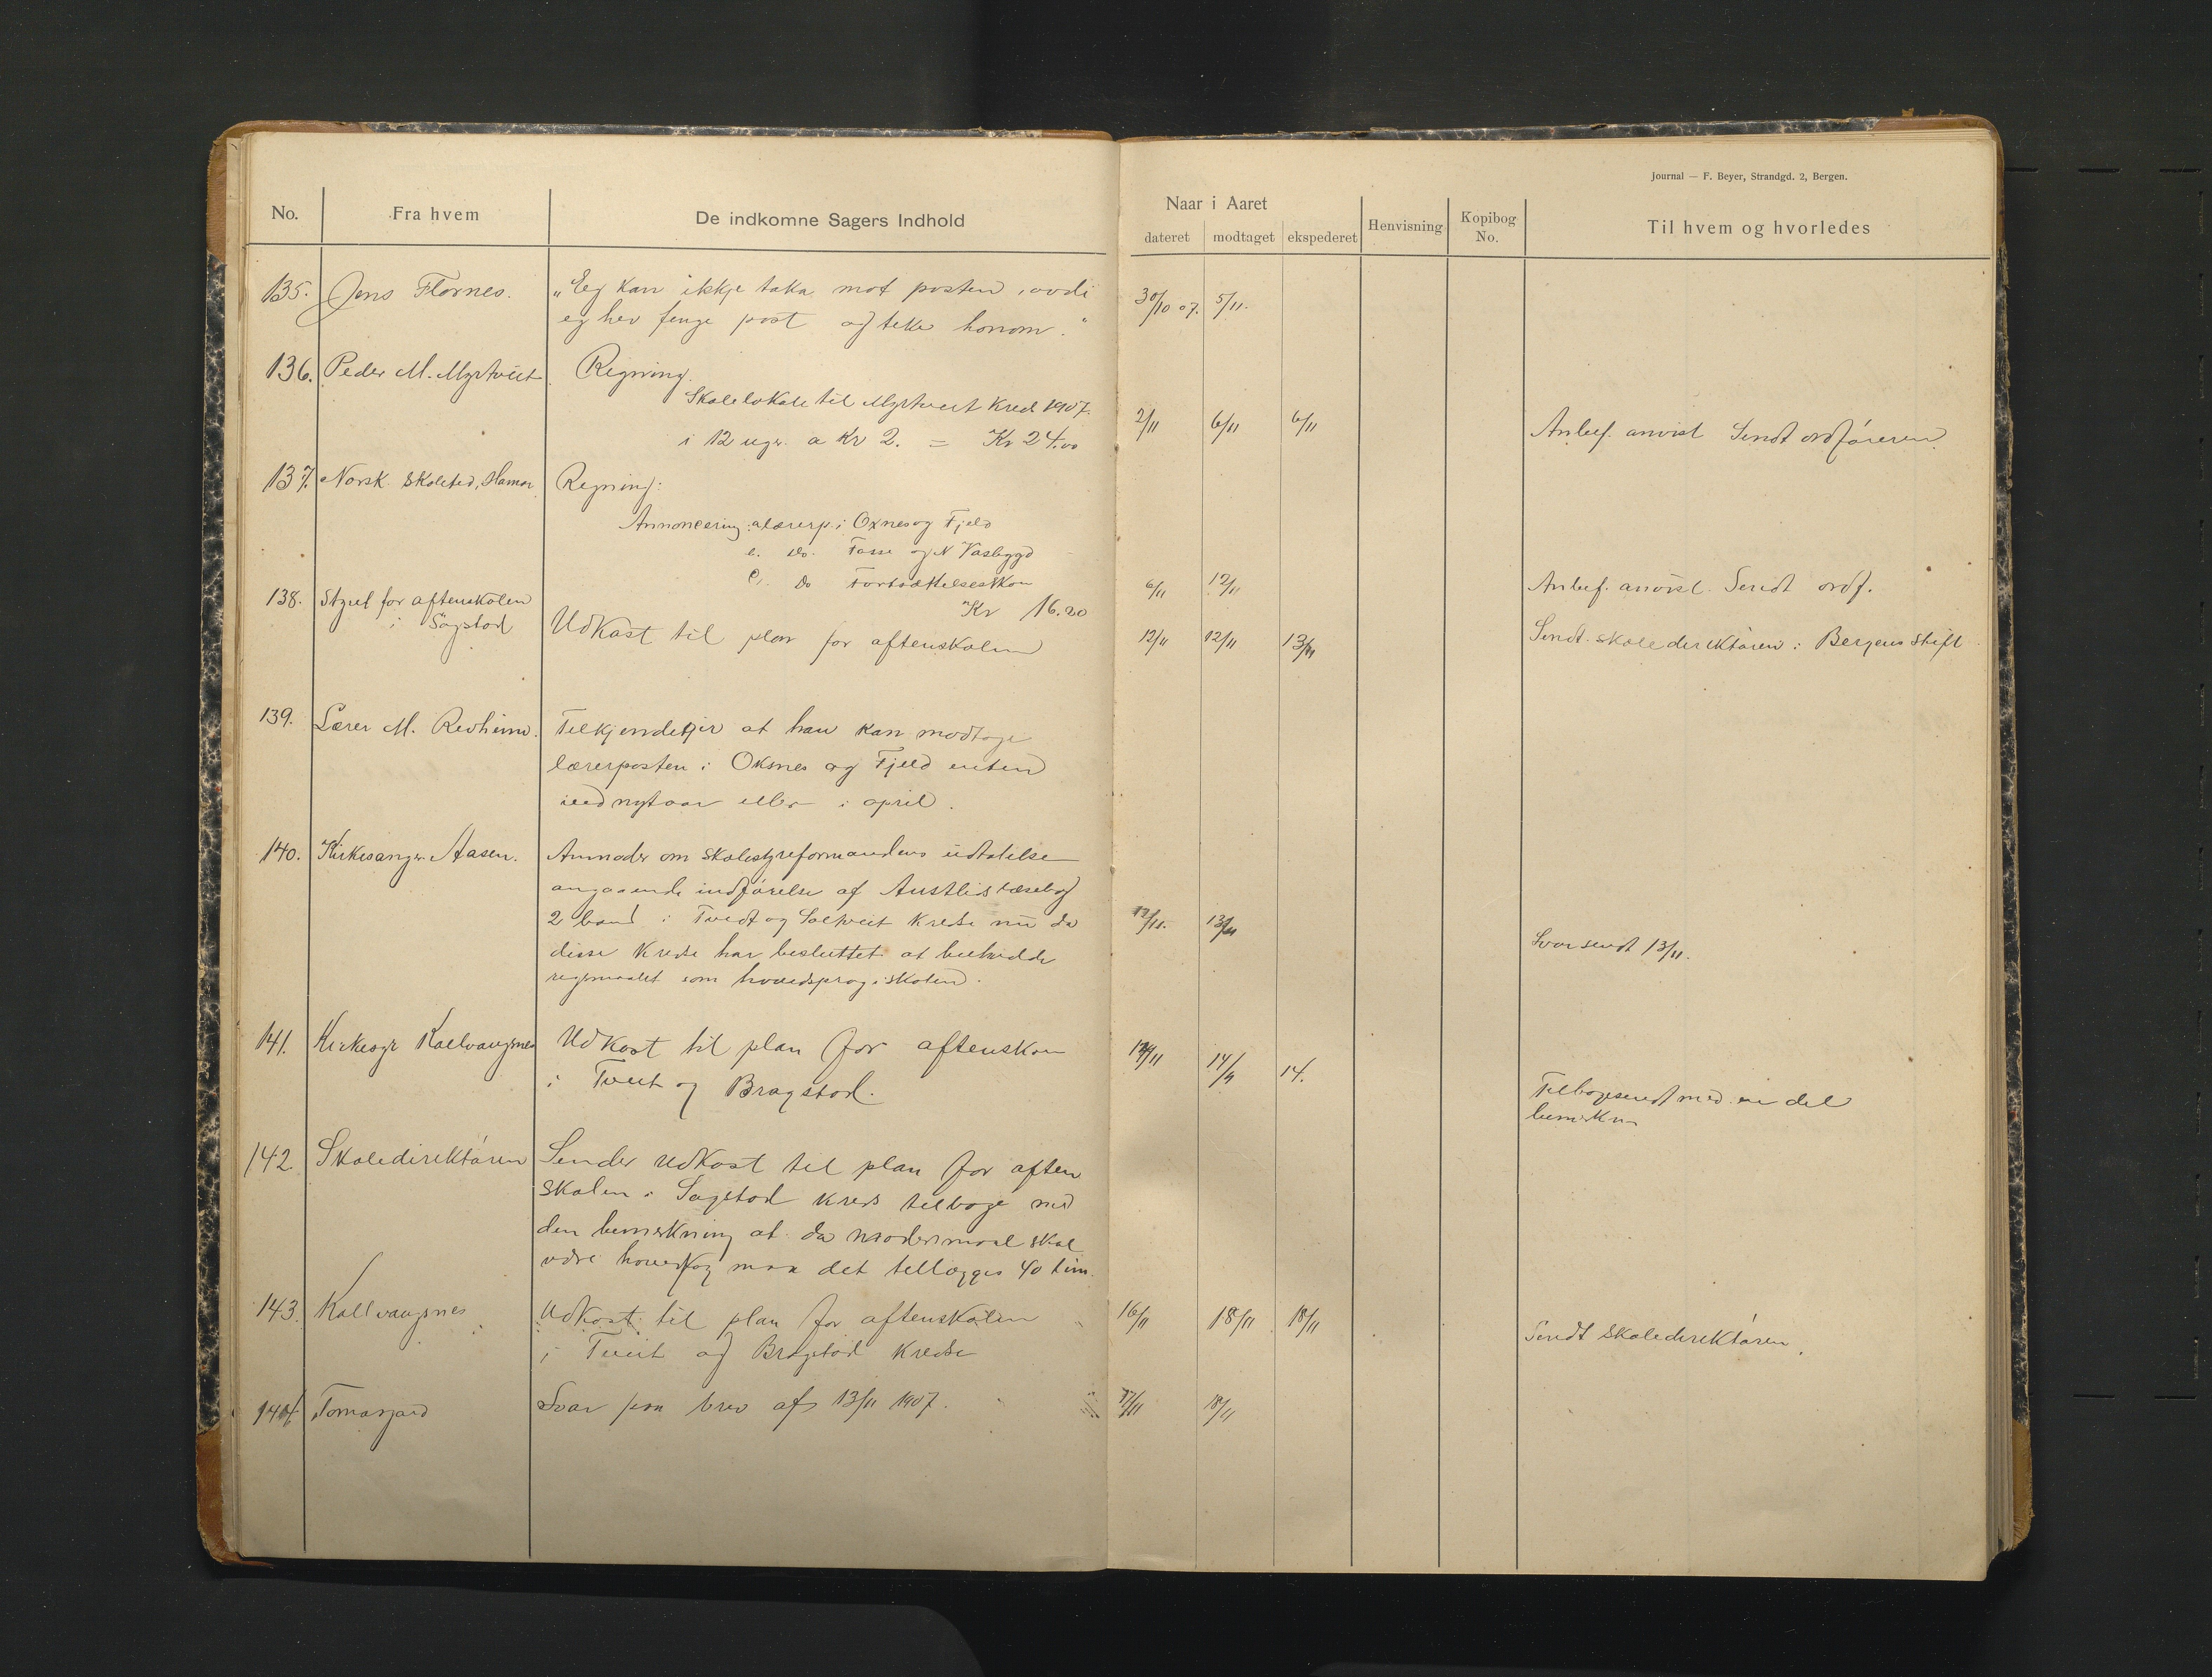 Journal — F. Beyer, Strandgd. 2, Bergen.
No. Fra hvem De indkomne Sagers Indhold Naar i Aaret dateret modtaget ekspederet Henvisning Kopibog No. Til hvem og hvorledes
135. Jens Flornes. „Eg kan ikkje taka mot posten, avdi 30/10 07. 5/11.
eg hev fenge post og teke honom."
136. Peder M. Myrtveit. Regning.
Skolelokale til Myrtveit Kreds 1907.
i 12 uger a Kr 2. = Kr 24.00 2/11 6/11 6/11 Anbef. anvist Sendt ordføreren.
137. Norsk Skoletid, Hamar Regning:
Annoncering: a lærerp. i Oxnes og Fjeld
Do. Fosse og N Vasbygd
Do 6/11 12/11 Anbef. anvist. Sendt ordf.
Kr 16.20
138. Styret for aftenskolen
i Søgstad Udkast til plan for aftenskolen 12/11 12/11 13/11 Sendt skoledirektøren i Bergens Stift
139. Lærer M. Revheim. Tilkjendegir at han kan modtage
lærerposten i Oksnes og Fjeld enten
ved nytaar eller i april.
140. Kirkesanger Aasen. Anmoder om skolestyreformandens udtalelse
angaaende indførelse af Austlids læsebog
2 band i Tvedt og Soltveit Kredse nu da 13/11
disse Kredse har besluttet at beholde Svar sendt 13/11.
rigsmaalet som hovedsprog i skolen.
141. Kirkesgr Kallvaagnes Udkast til plan for aftenskon 14/11 14.
i Tveit og Bragstad. Tilbagesendt med en del
bemerkn
142. Skoledirektøren Sender Udkast til plan for aften
skolen i Sagstad Kreds tilbage med
den bemerkning at da modersmaal skal
være hovedfag maa det tillægges 40 tim.
143. Kallvaagnes Udkast til plan for aftenskolen 16/11 18/11 18/11 Sendt Skoledirektøren.
i Tveit og Bragstad Kredse
144. Tomasgard Svar paa brev af 13/11 1907. 17/11 18/11